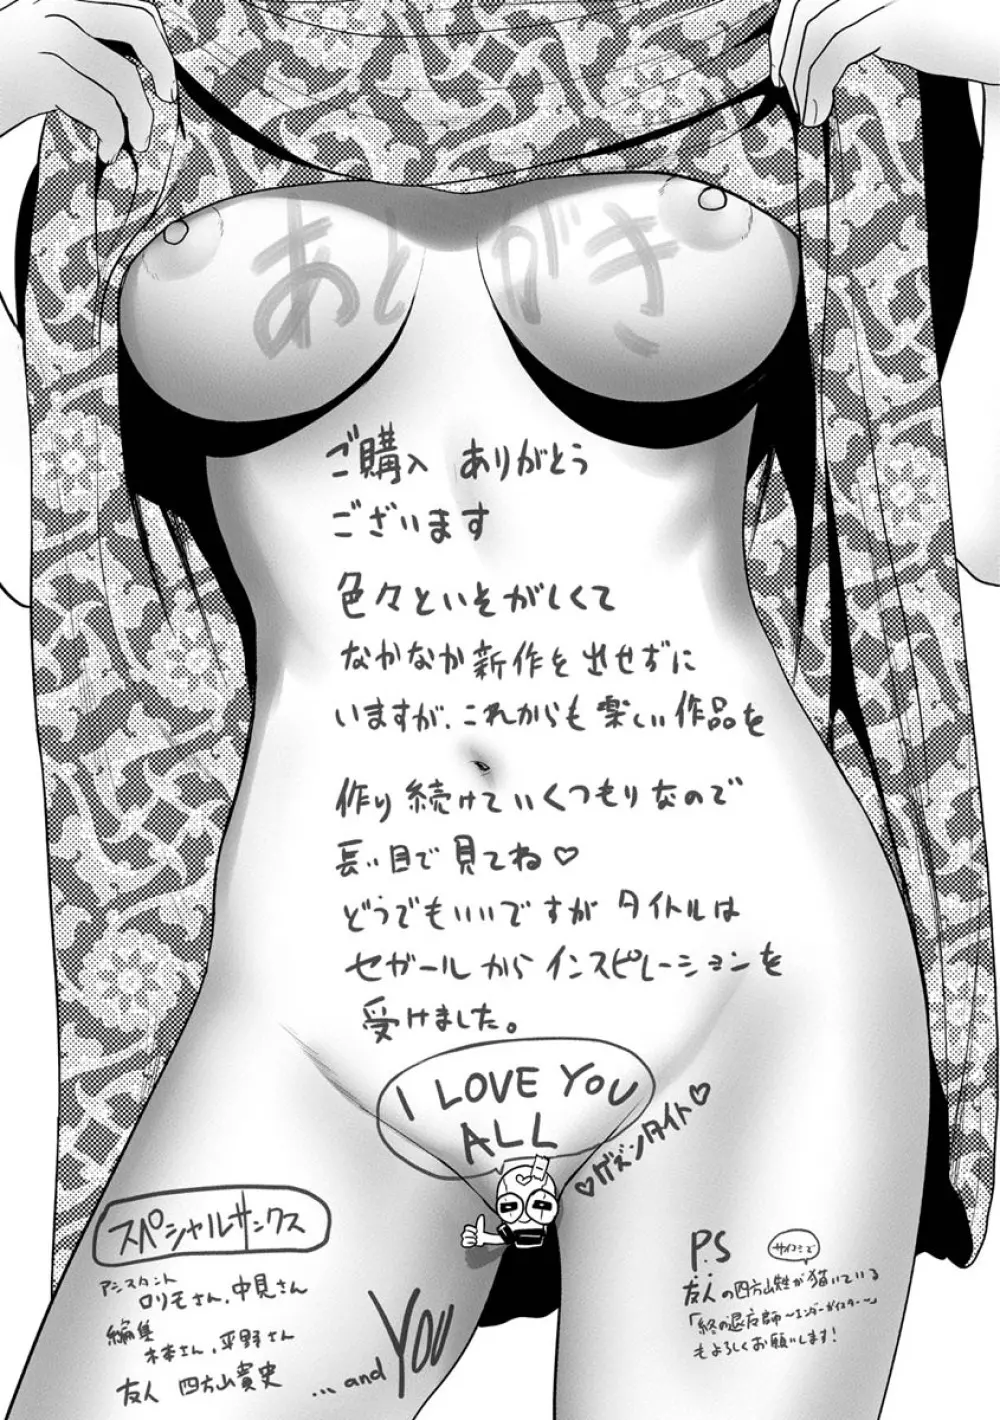 あとがき
ご購入 ありがとう
ございます
色々といそがしくて
なかなか新作を出せずに
いますが、これからも楽しい作品を
作り続けていくつもりなので
長い目で見てね♡
どうでもいいですが タイトルは
セガールからインスピレーションを
受けました。
I LOVE YOU
ALL
♡ゲズンタイト♡
スペシャルサンクス
アシスタント
ロリモさん、中見さん
編集
木本さん、平野さん
友人 四方山貴史
...and YOU
P.S
サイコミで
友人の四方山姓が描いている
「終の退友師〜エンダーガイスター〜」
もよろしくお願いします!